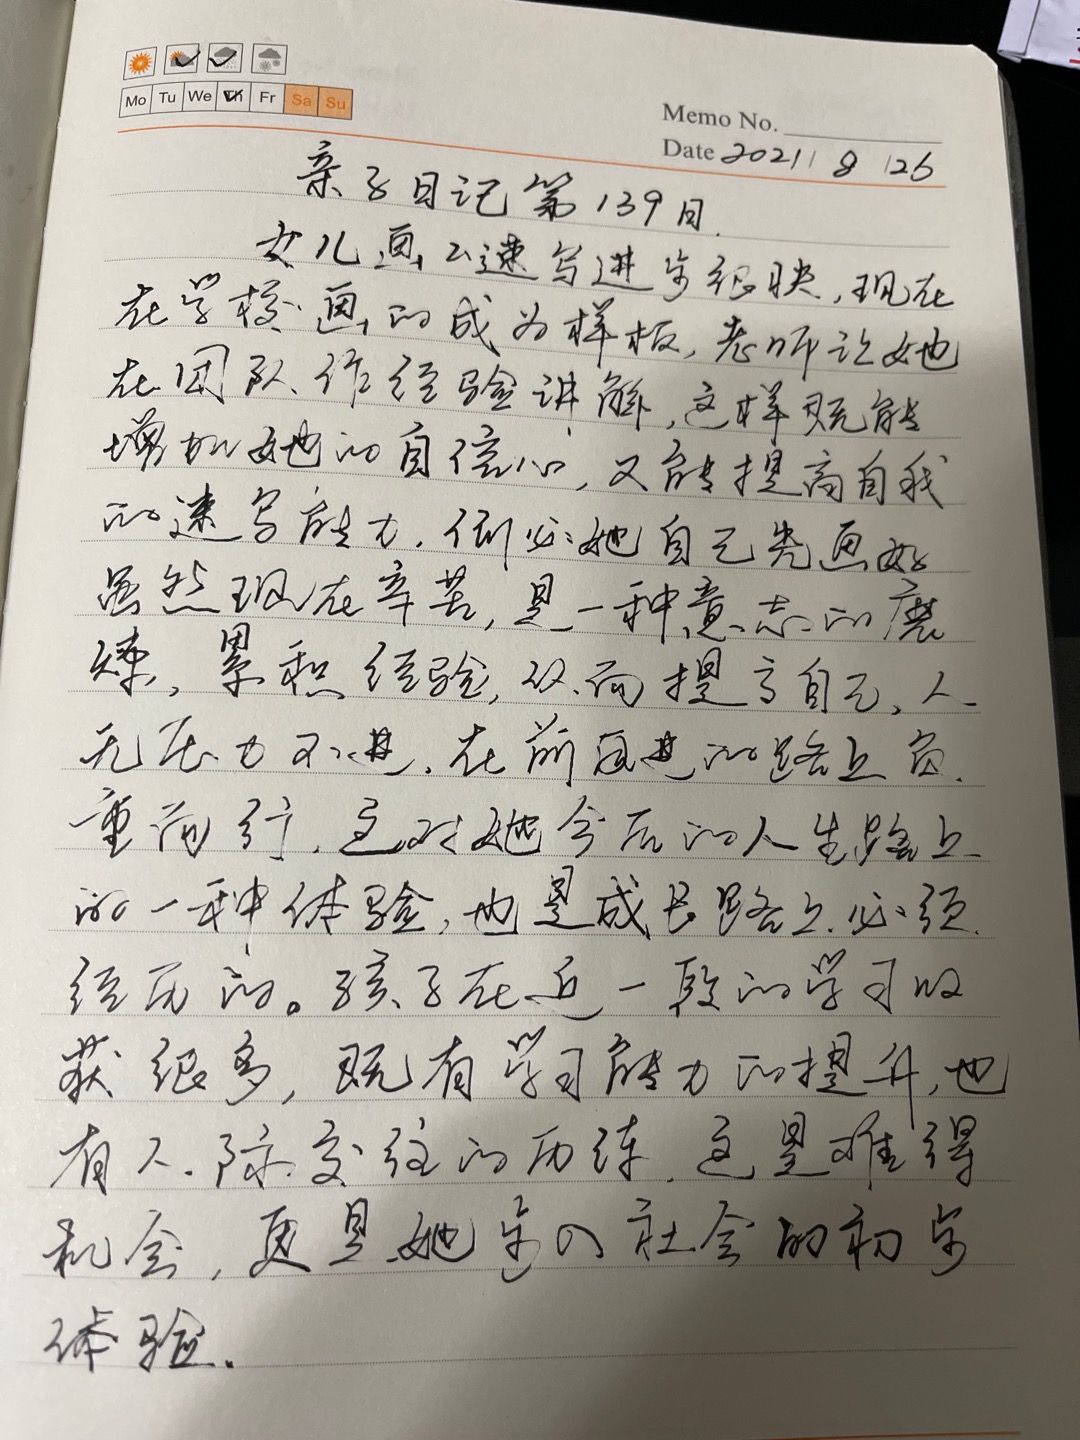 Mo Tu We Th Fr Sa Su
Memo No.
Date 2021 8 26
亲子日记第139日.
女儿画速写进步很快,现在
在学校画的成为样板,老师让她
在团队作经验讲解,这样既能
增加她的自信心,又能提高自我
的速写能力.倒必她自己先画好
虽然现在辛苦,是一种意志的磨
炼,累积经验,从而提高自己,人
无压力不进,在前进的路上负
重而行,这对她今后的人生路上
的一种体验,也是成长路上必须
经历的。孩子在近一段的学习收
获很多,既有学习能力的提升,也
有人际交往的历练,这是难得
机会,更是她步入社会的初步
体验.